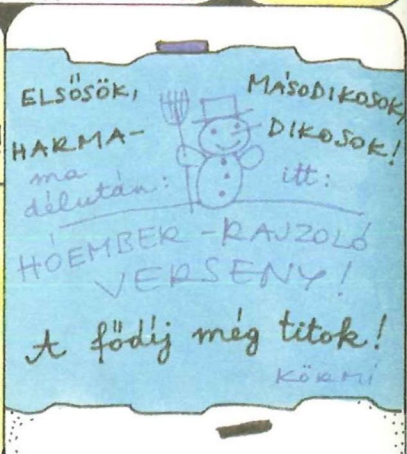 ELSŐSÖK, MÁSODIKOSOK,
HARMA- DIKOSOK!
ma délután: itt:
HÓEMBER-RAJZOLÓ
VERSENY!
A fődíj még titok!
KÖRMI